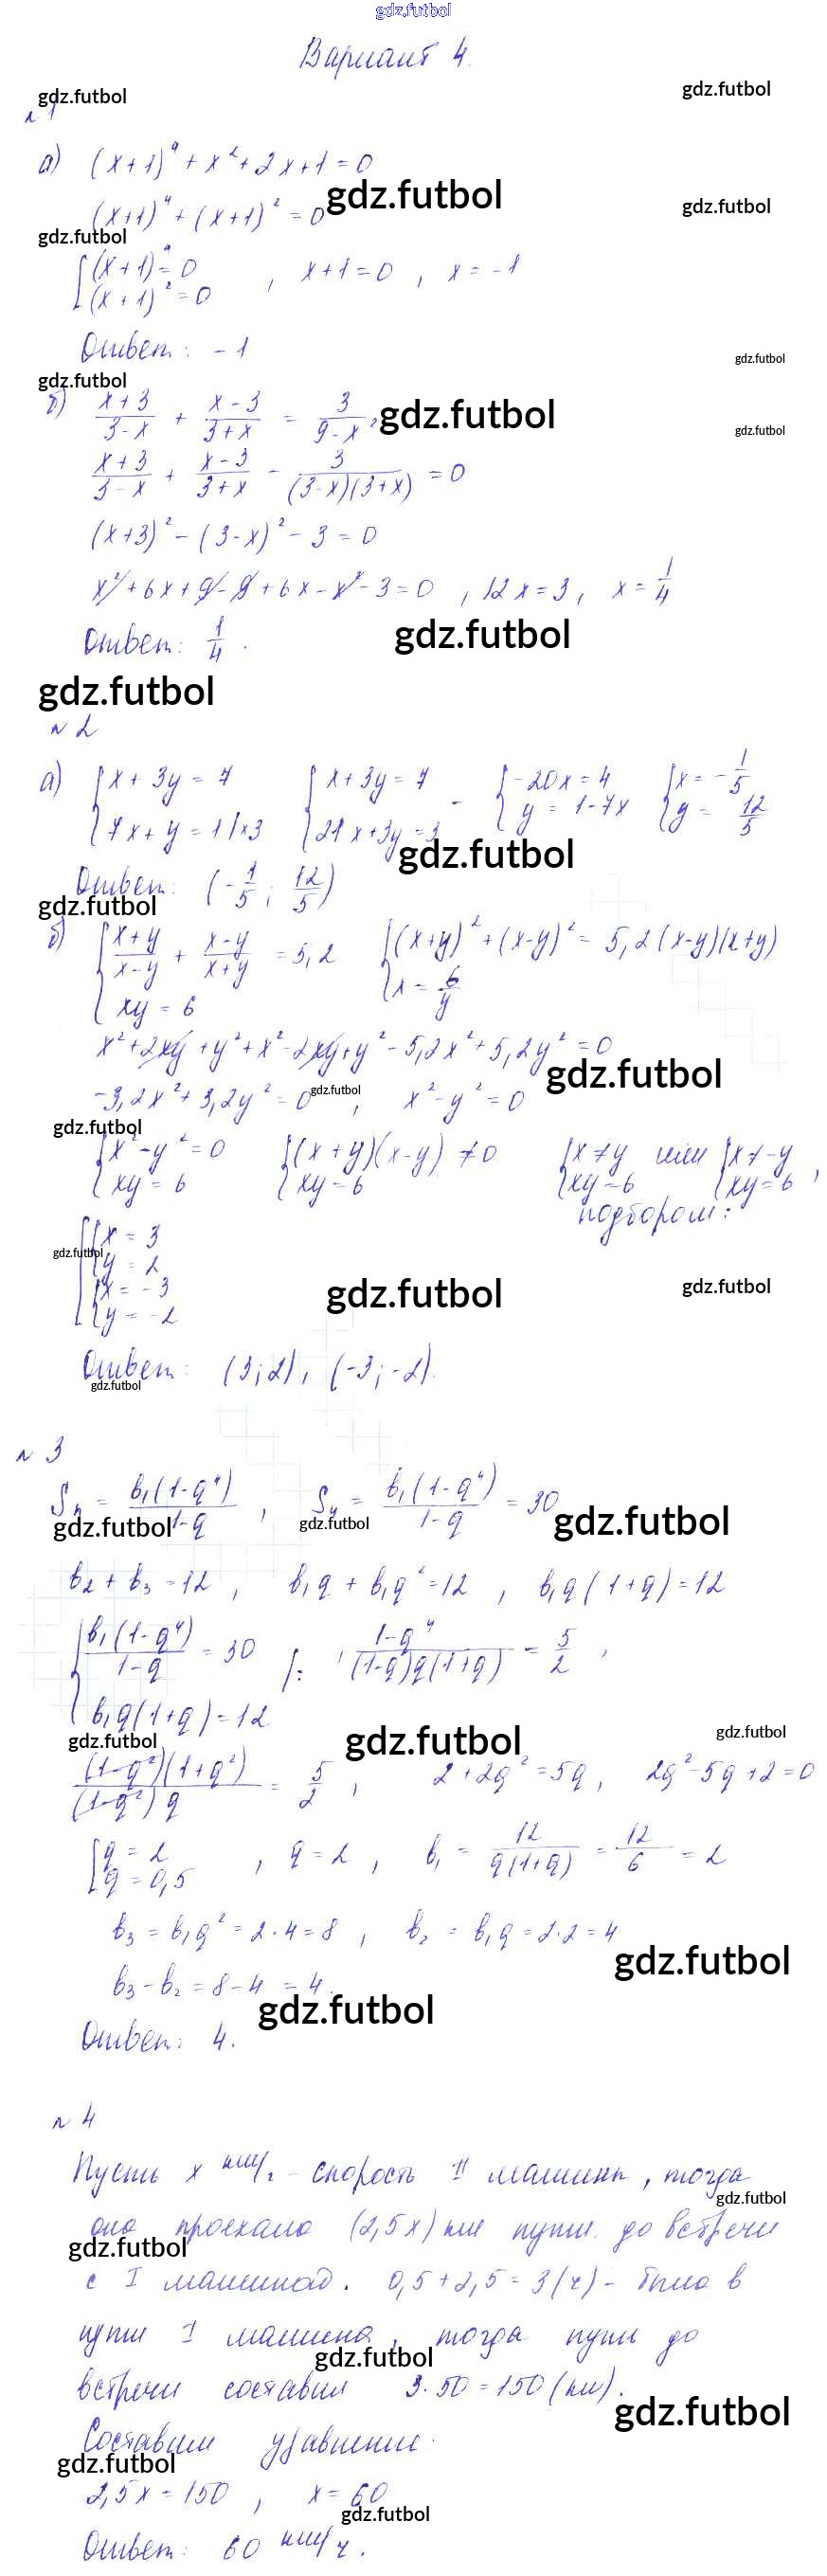 gdz.futbol
Вариант 4.
gdz.futbol gdz.futbol
№1
а) (x+1)⁴ + x² + 2x + 1 = 0
gdz.futbol gdz.futbol
(x+1)⁴ + (x+1)² = 0
gdz.futbol
[(x+1)⁴ = 0
(x+1)² = 0 , x+1 = 0 , x = -1
Ответ: -1
gdz.futbol
gdz.futbol
б) (x+3)/(3-x) + (x-3)/(3+x) = 3/(9-x²)
gdz.futbol
gdz.futbol
(x+3)/(3-x) + (x-3)/(3+x) - 3/((3-x)(3+x)) = 0
(x+3)² - (3-x)² - 3 = 0
x² + 6x + 9 - 9 + 6x - x² - 3 = 0 , 12x = 3, x = 1/4
Ответ: 1/4.
gdz.futbol
gdz.futbol
№2
а) {x + 3y = 7 {x + 3y = 7 - {-20x = 4 {x = -1/5
{7x + y = 1 | ×3 {21x + 3y = 3 {y = 1 - 7x {y = 12/5
gdz.futbol
Ответ: (-1/5; 12/5)
gdz.futbol
б) {(x+y)/(x-y) + (x-y)/(x+y) = 5,2 {(x+y)² + (x-y)² = 5,2(x-y)(x+y)
{xy = 6 {x = 6/y
x² + 2xy + y² + x² - 2xy + y² - 5,2x² + 5,2y² = 0
gdz.futbol
-3,2x² + 3,2y² = 0 , x² - y² = 0
gdz.futbol
gdz.futbol
{x² - y² = 0 {(x+y)(x-y) ≠ 0 {x ≠ y или {x ≠ -y
{xy = 6 {xy = 6 {xy = 6 {xy = 6 ,
подбором:
[{x = 3
{y = 2
gdz.futbol
{x = -3
{y = -2
gdz.futbol gdz.futbol
Ответ: (3; 2), (-3; -2).
gdz.futbol
№3
Sₙ = b₁(1-q⁴)/(1-q) , S₄ = b₁(1-q⁴)/(1-q) = 30
gdz.futbol gdz.futbol gdz.futbol
b₂ + b₃ = 12 , b₁q + b₁q² = 12 , b₁q(1+q) = 12
{b₁(1-q⁴)/(1-q) = 30 |: , (1-q⁴)/((1-q)q(1+q)) = 5/2 ,
{b₁q(1+q) = 12
gdz.futbol gdz.futbol gdz.futbol
(1-q²)(1+q²)/((1-q²)q) = 5/2 , 2 + 2q² = 5q, 2q² - 5q + 2 = 0
[q = 2
q = 0,5 , q = 2 , b₁ = 12/(q(1+q)) = 12/6 = 2
b₃ = b₁q² = 2·4 = 8 , b₂ = b₁q = 2·2 = 4
gdz.futbol
b₃ - b₂ = 8 - 4 = 4.
gdz.futbol
Ответ: 4.
№4
Пусть x км/ч - скорость II машины, тогда
gdz.futbol
она проехала (2,5x) км пути до встречи
gdz.futbol
с I машиной. 0,5 + 2,5 = 3 (ч) - была в
пути I машина, тогда путь до
gdz.futbol
встречи составил 3·50 = 150 (км).
gdz.futbol
Составим уравнение:
gdz.futbol
2,5x = 150 , x = 60
gdz.futbol
Ответ: 60 км/ч.